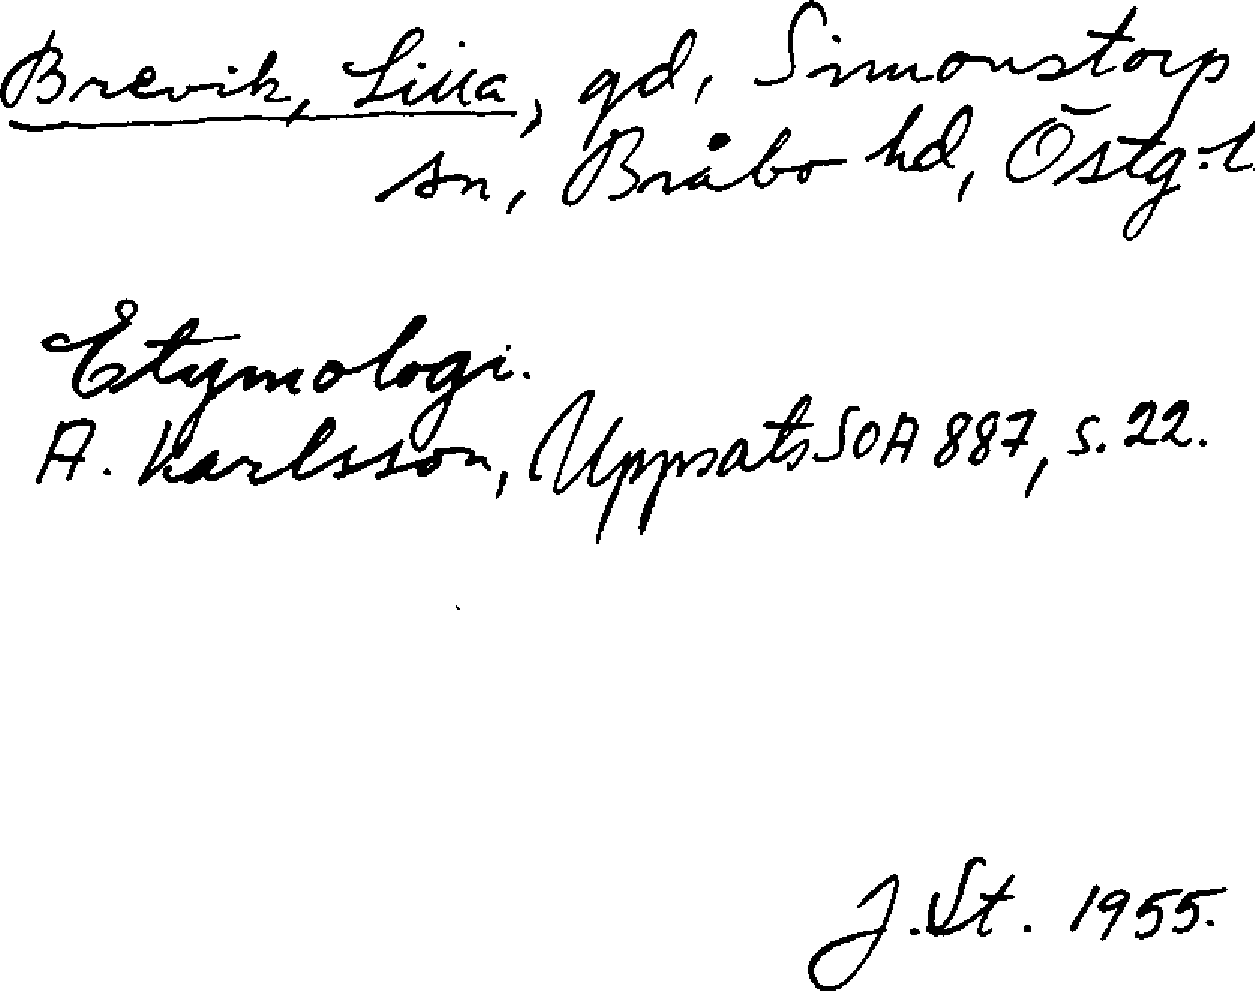 Brevik, Lilla, gd, Simonstorp
sn, Bråbo hd, Östg.l.
Etymologi.
A. Karlsson, Uppsats SOA 887, s. 22.
J. St. 1955.